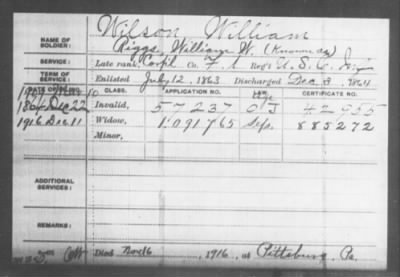 Wilson William
NAME OF SOLDIER: Riggs, William W. (Known as)
SERVICE: Late rank, Corp'l Co. F, 1 Reg't U.S.C. Inf
TERM OF SERVICE: Enlisted July 12, 1863 Discharged Dec. 3, 1864
DATE OF FILING. CLASS. APPLICATION NO. LAW. CERTIFICATE NO.
1864 Dec 22 Invalid, 57237 42955
1916 Dec 11 Widow, 1,091,765 885272
Minor,
ADDITIONAL SERVICES:
REMARKS:
Died Nov 16, 1916, at Pittsburg, Pa.